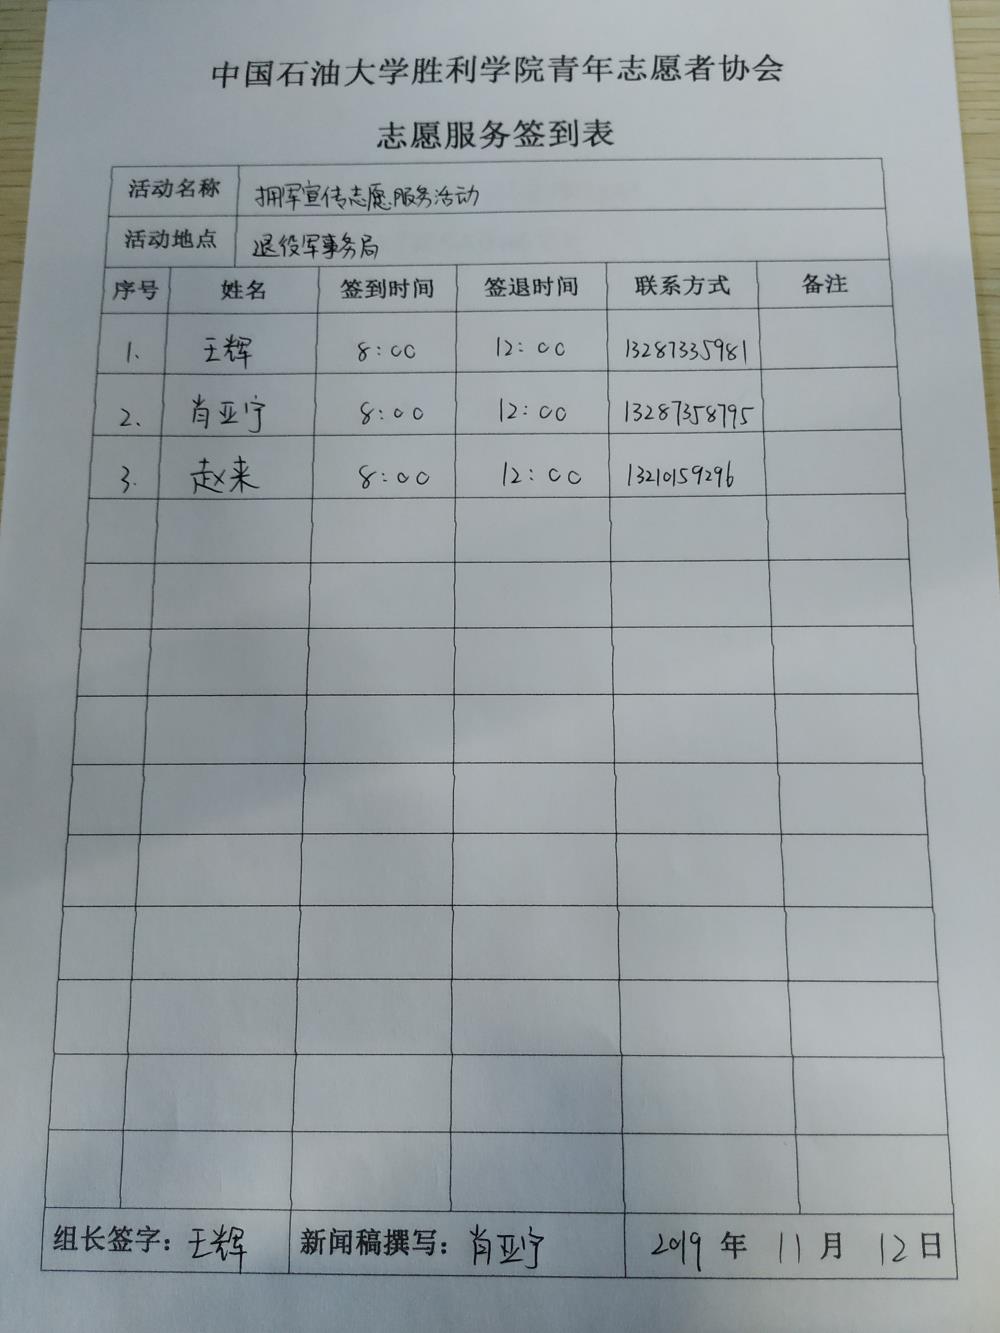 中国石油大学胜利学院青年志愿者协会
志愿服务签到表
活动名称 拥军宣传志愿服务活动
活动地点 退役军事务局
序号 姓名 签到时间 签退时间 联系方式 备注
1. 王辉 8:00 12:00 13287335981
2. 肖亚宁 8:00 12:00 13287358795
3. 赵来 8:00 12:00 13210159296
组长签字：王辉 新闻稿撰写：肖亚宁 2019 年 11 月 12 日